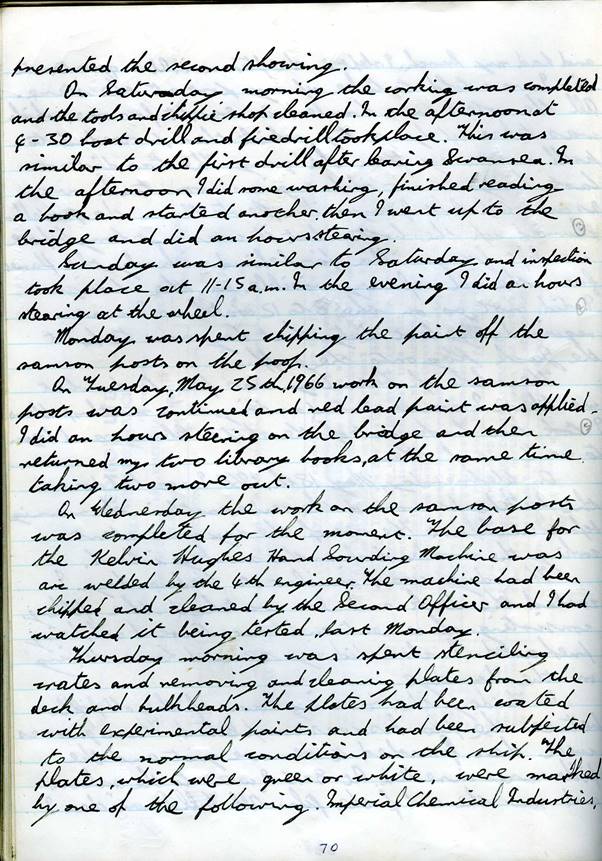 presented the second showing.
On Saturday morning the corking was completed
and the tools and chippie shop cleaned. In the afternoon at
4-30 boat drill and fire drill took place. This was
similar to the first drill after leaving Swansea. In
the afternoon I did some washing, finished reading
a book and started another, then I went up to the
bridge and did an hours stearing.
Sunday was similar to Saturday and inspection
took place at 11-15 a.m. In the evening I did an hours
stearing at the wheel.
Monday was spent chipping the paint off the
samson posts on the poop.
On Tuesday, May 25th, 1966 work on the samson
posts was continued and red lead paint was applied.
I did an hours steering on the bridge and then
returned my two library books, at the same time
taking two more out.
On Wednesday the work on the samson posts
was completed for the moment. The base for
the Kelvin Hughes Hand Sounding Machine was
arc welded by the 4th engineer. The machine had been
chipped and cleaned by the Second Officer and I had
watched it being tested, last Monday.
Thursday morning was spent stenciling
crates and removing and cleaning plates from the
deck and bulkheads. The plates had been coated
with experimental paints and had been subjected
to the normal conditions on the ship. The
plates, which were green or white, were marked
by one of the following. Imperial Chemical Industries,
70